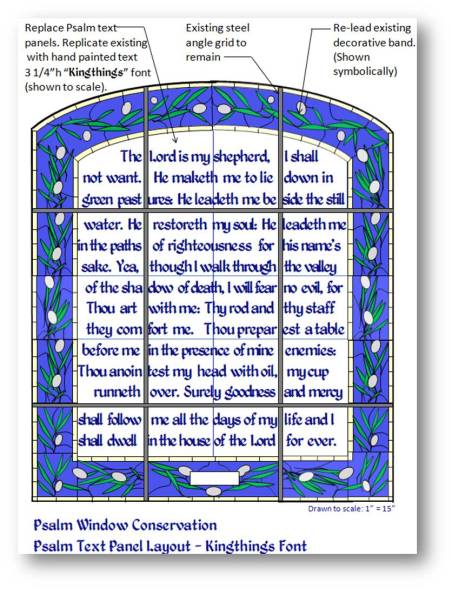 Replace Psalm text
panels. Replicate existing
with hand painted text
3 1/4"h "Kingthings" font
(shown to scale).
Existing steel
angle grid to
remain
Re-lead existing
decorative band.
(Shown
symbolically)
The Lord is my shepherd, I shall
not want. He maketh me to lie down in
green past ures: He leadeth me be side the still
water. He restoreth my soul: He leadeth me
in the paths of righteousness for his name's
sake. Yea, though I walk through the valley
of the sha dow of death, I will fear no evil, for
Thou art with me: Thy rod and thy staff
they com fort me. Thou prepar est a table
before me in the presence of mine enemies:
Thou anoin test my head with oil, my cup
runneth over. Surely goodness and mercy
shall follow me all the days of my life and I
shall dwell in the house of the Lord for ever.
Drawn to scale: 1" = 15"
Psalm Window Conservation
Psalm Text Panel Layout - Kingthings Font